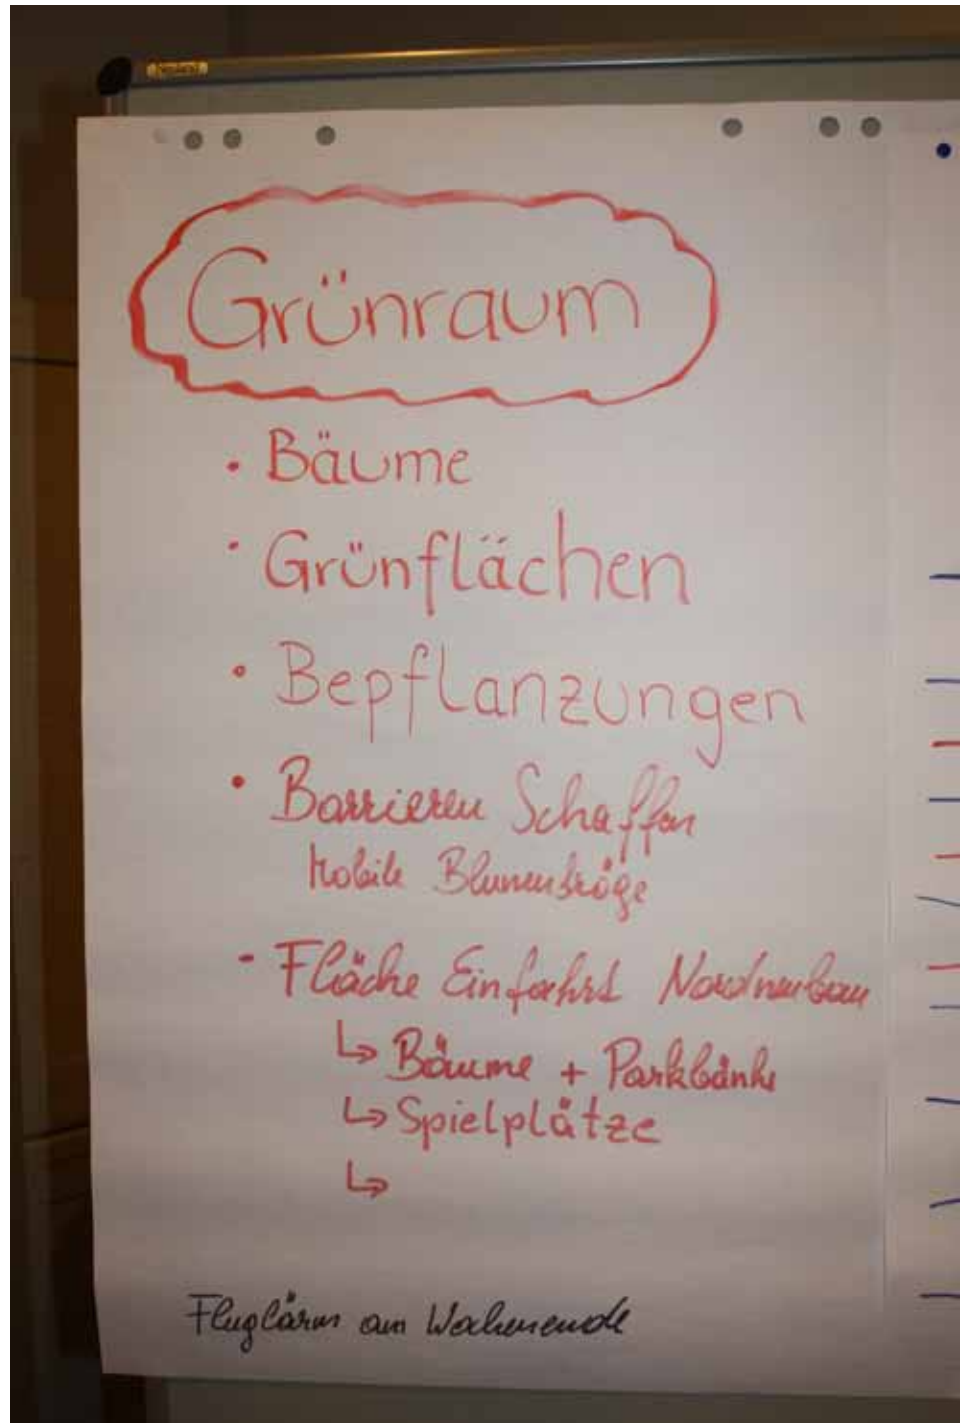 Neuland
Grünraum
• Bäume
• Grünflächen
• Bepflanzungen
• Barrieren Schaffen
Mobile Blumentröge
- Fläche Einfahrt Nordneubau
↳ Bäume + Parkbänke
↳ Spielplätze
↳
Fluglärm am Wochenende